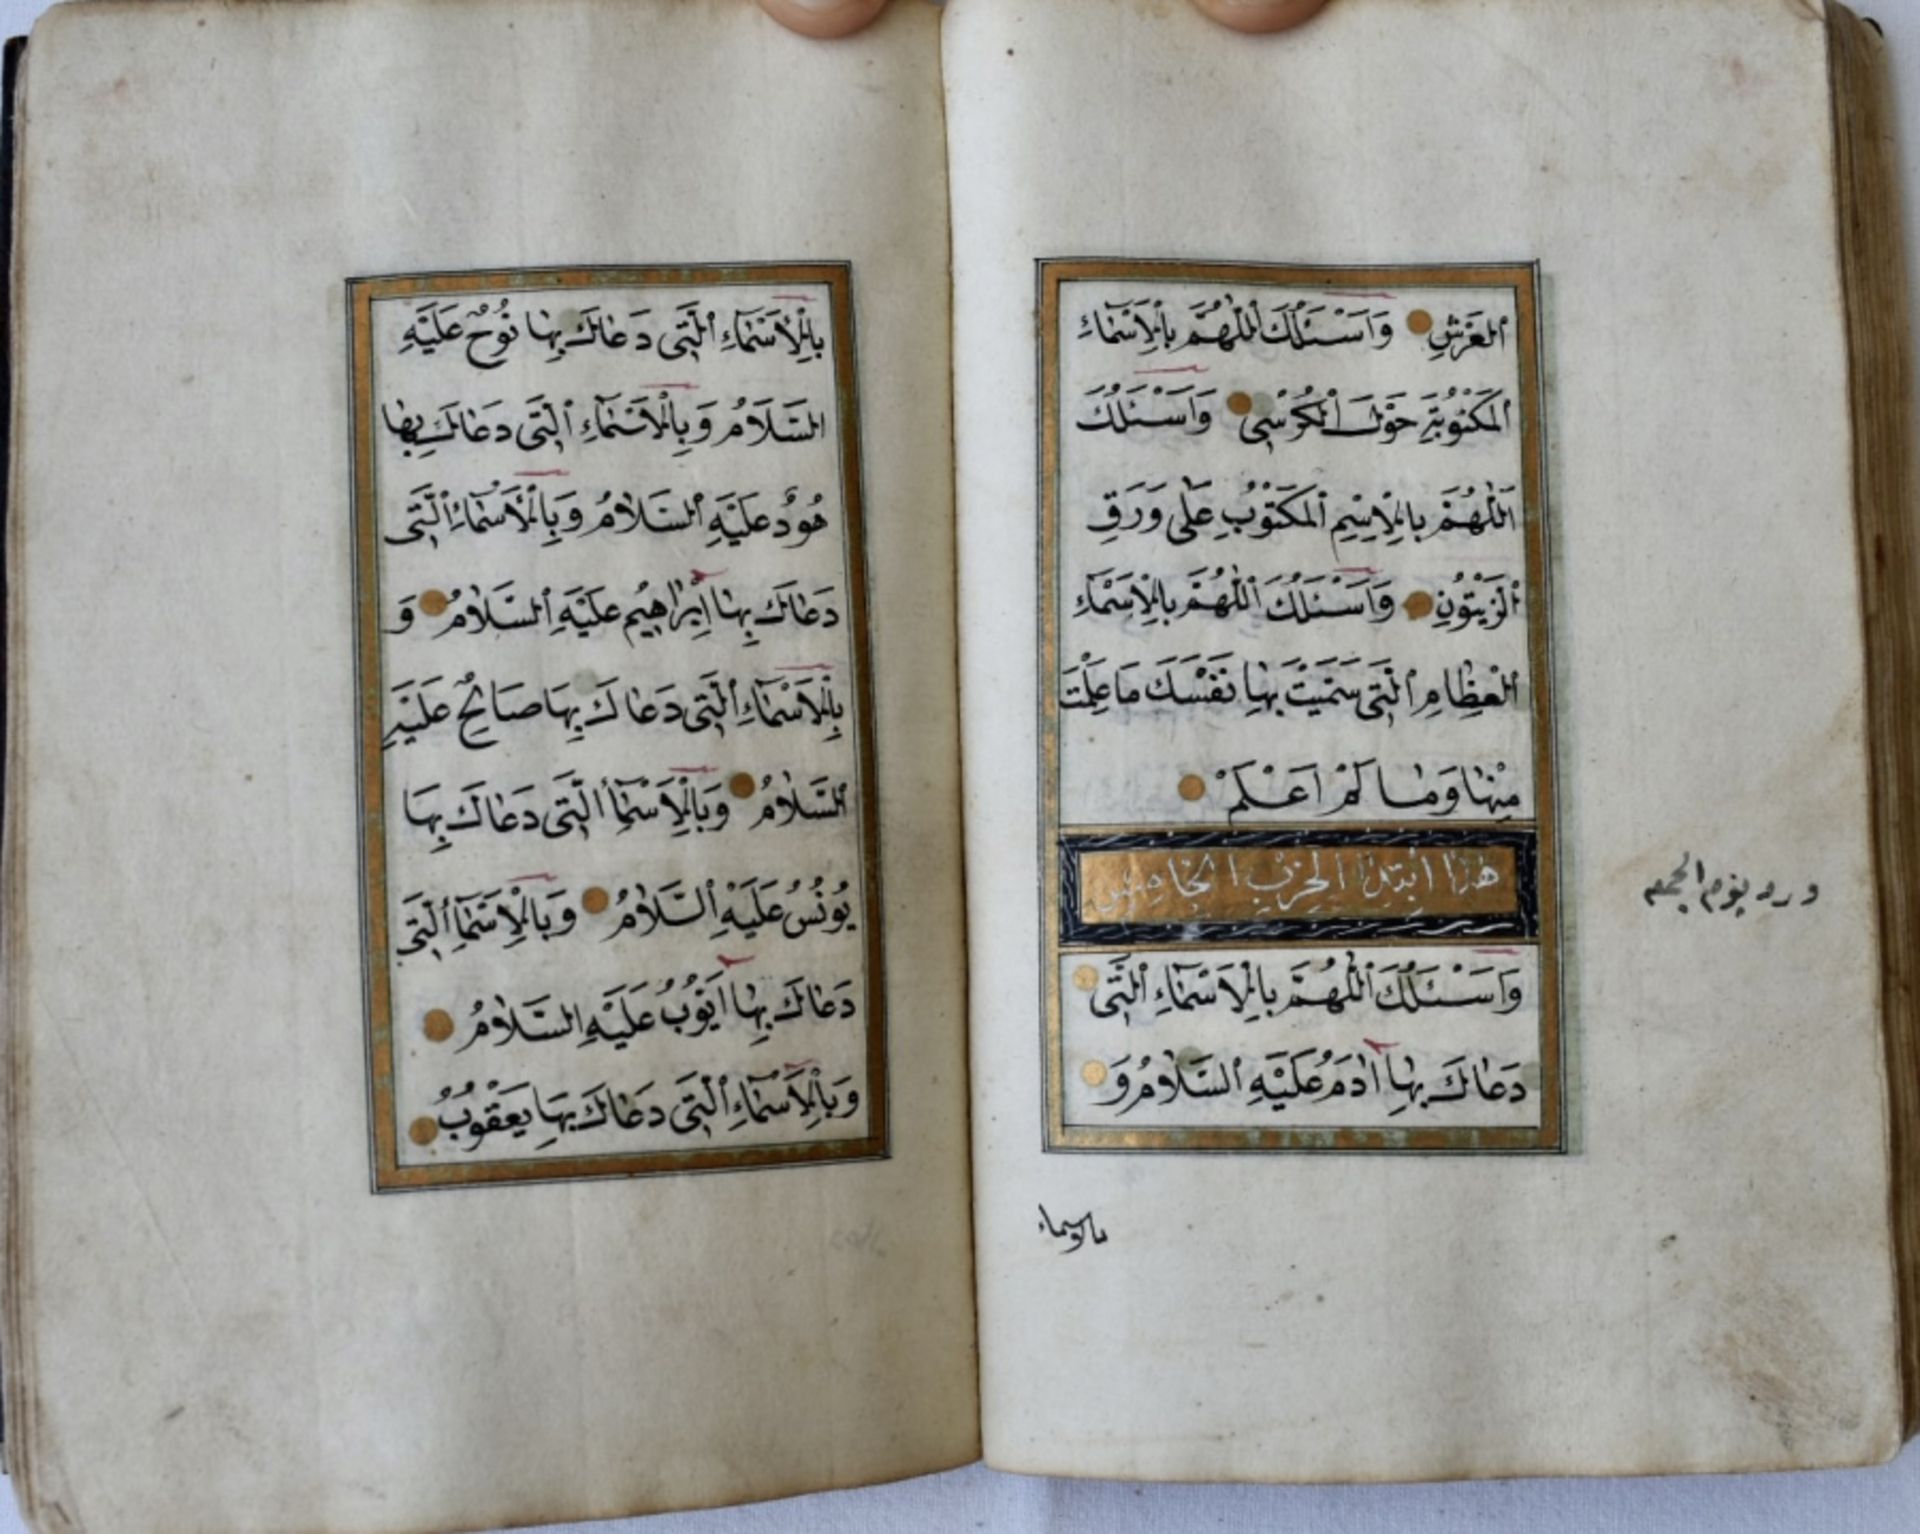 اَلْعَرْشِ وَاَسْئَلُكَ اَللّٰهُمَّ بِالْاَسْمَاءِ
اَلْمَكْتُوبَةِ حَوْلَ الْكُرْسِي وَاَسْئَلُكَ
اَللّٰهُمَّ بِالْاِسْمِ الْمَكْتُوبِ عَلٰى وَرَقِ
الزَّيْتُونِ وَاَسْئَلُكَ اللّٰهُمَّ بِالْاَسْمَاءِ
الْعِظَامِ الَّتِى سَمَّيْتَ بِهَا نَفْسَكَ مَا عَلِمْتُ
مِنْهَا وَمَا لَمْ اَعْلَمْ
هٰذَا اِبْتِدَا الْحِزْبِ الْخَامِسِ
ورد يوم الجمعه
وَاَسْئَلُكَ اللّٰهُمَّ بِالْاَسْمَاءِ الَّتِى
دَعَاكَ بِهَا اٰدَمُ عَلَيْهِ السَّلَامُ وَ
بالاسماء
بِالْاَسْمَاءِ الَّتِى دَعَاكَ بِهَا نُوحٌ عَلَيْهِ
السَّلَامُ وَبِالْاَسْمَاءِ الَّتِى دَعَاكَ بِهَا
هُودٌ عَلَيْهِ السَّلَامُ وَبِالْاَسْمَاءِ الَّتِى
دَعَاكَ بِهَا اِبْرَاهِيمُ عَلَيْهِ السَّلَامُ وَ
بِالْاَسْمَاءِ الَّتِى دَعَاكَ بِهَا صَالِحٌ عَلَيْهِ
السَّلَامُ وَبِالْاَسْمَاءِ الَّتِى دَعَاكَ بِهَا
يُونُسُ عَلَيْهِ السَّلَامُ وَبِالْاَسْمَاءِ الَّتِى
دَعَاكَ بِهَا اَيُّوبُ عَلَيْهِ السَّلَامُ
وَبِالْاَسْمَاءِ الَّتِى دَعَاكَ بِهَا يَعْقُوبُ